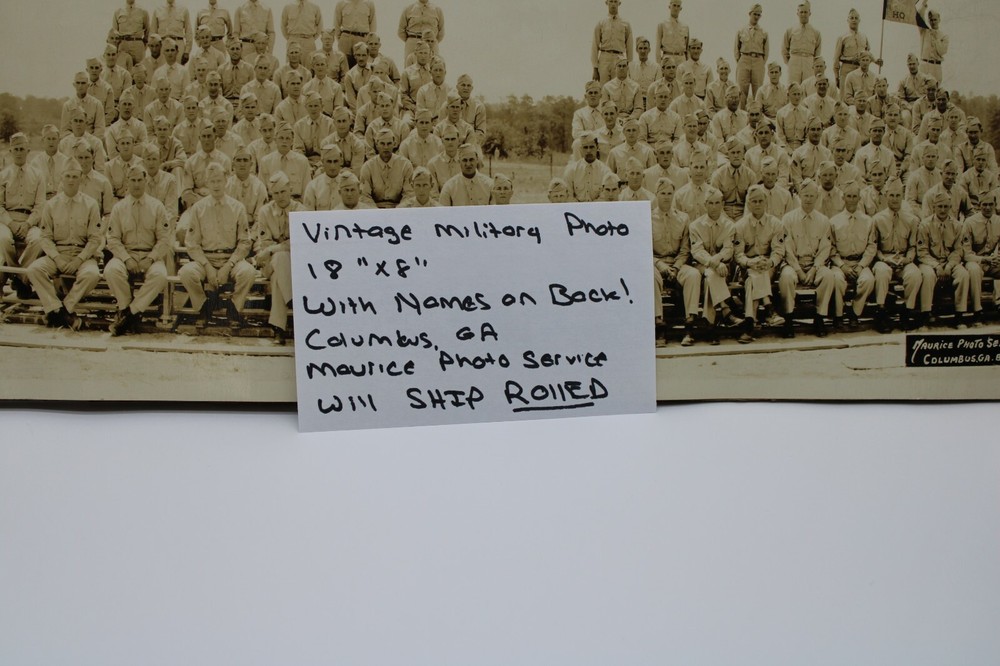 HQ
Vintage military Photo
18 "x8"
With Names on Back!
Columbus, GA
Maurice Photo Service
Will SHIP ROllED
MAURICE PHOTO SE
COLUMBUS,GA.